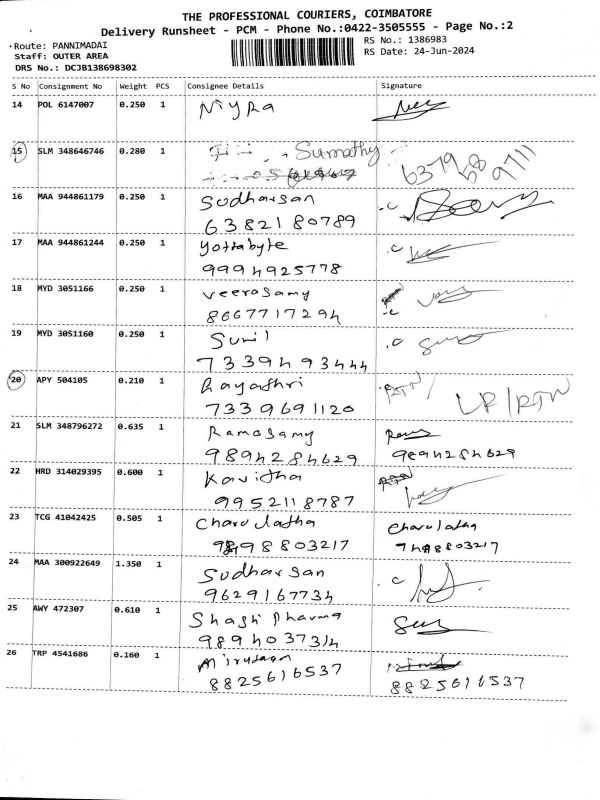 THE PROFESSIONAL COURIERS, COIMBATORE
Delivery Runsheet - PCM - Phone No.:0422-3505555 - Page No.:2
Route: PANNIMADAI
RS No.: 1386983
Staff: OUTER AREA
RS Date: 24-Jun-2024
DRS No.: DCJB138698302
S No Consignment No Weight PCS Consignee Details Signature
14 POL 6147007 0.250 1 Niyra
15 SLM 348646746 0.280 1 Sumathy
6379 58 9711
16 MAA 944861179 0.250 1 Sudharsan
6382180789
17 MAA 944861244 0.250 1 yottabyte
9994925778
18 MYD 3051166 0.250 1 veerasamy
8667717294
19 MYD 3051160 0.250 1 Sunil
7339493444
20 APY 504105 0.210 1 RTN
7339691120
21 SLM 348796272 0.635 1 Ramasamy
9894284629 9894284629
22 HRD 314029395 0.600 1 Kavitha
9952118787
23 TCG 41042425 0.505 1 Charulatha Charulatha
8803217 8803217
24 MAA 300922649 1.350 1 Sudharsan
9629167734
25 AWY 472307 0.610 1 Shashi
9894037314
26 TRP 4541686 0.160 1
8825616537 8825616537